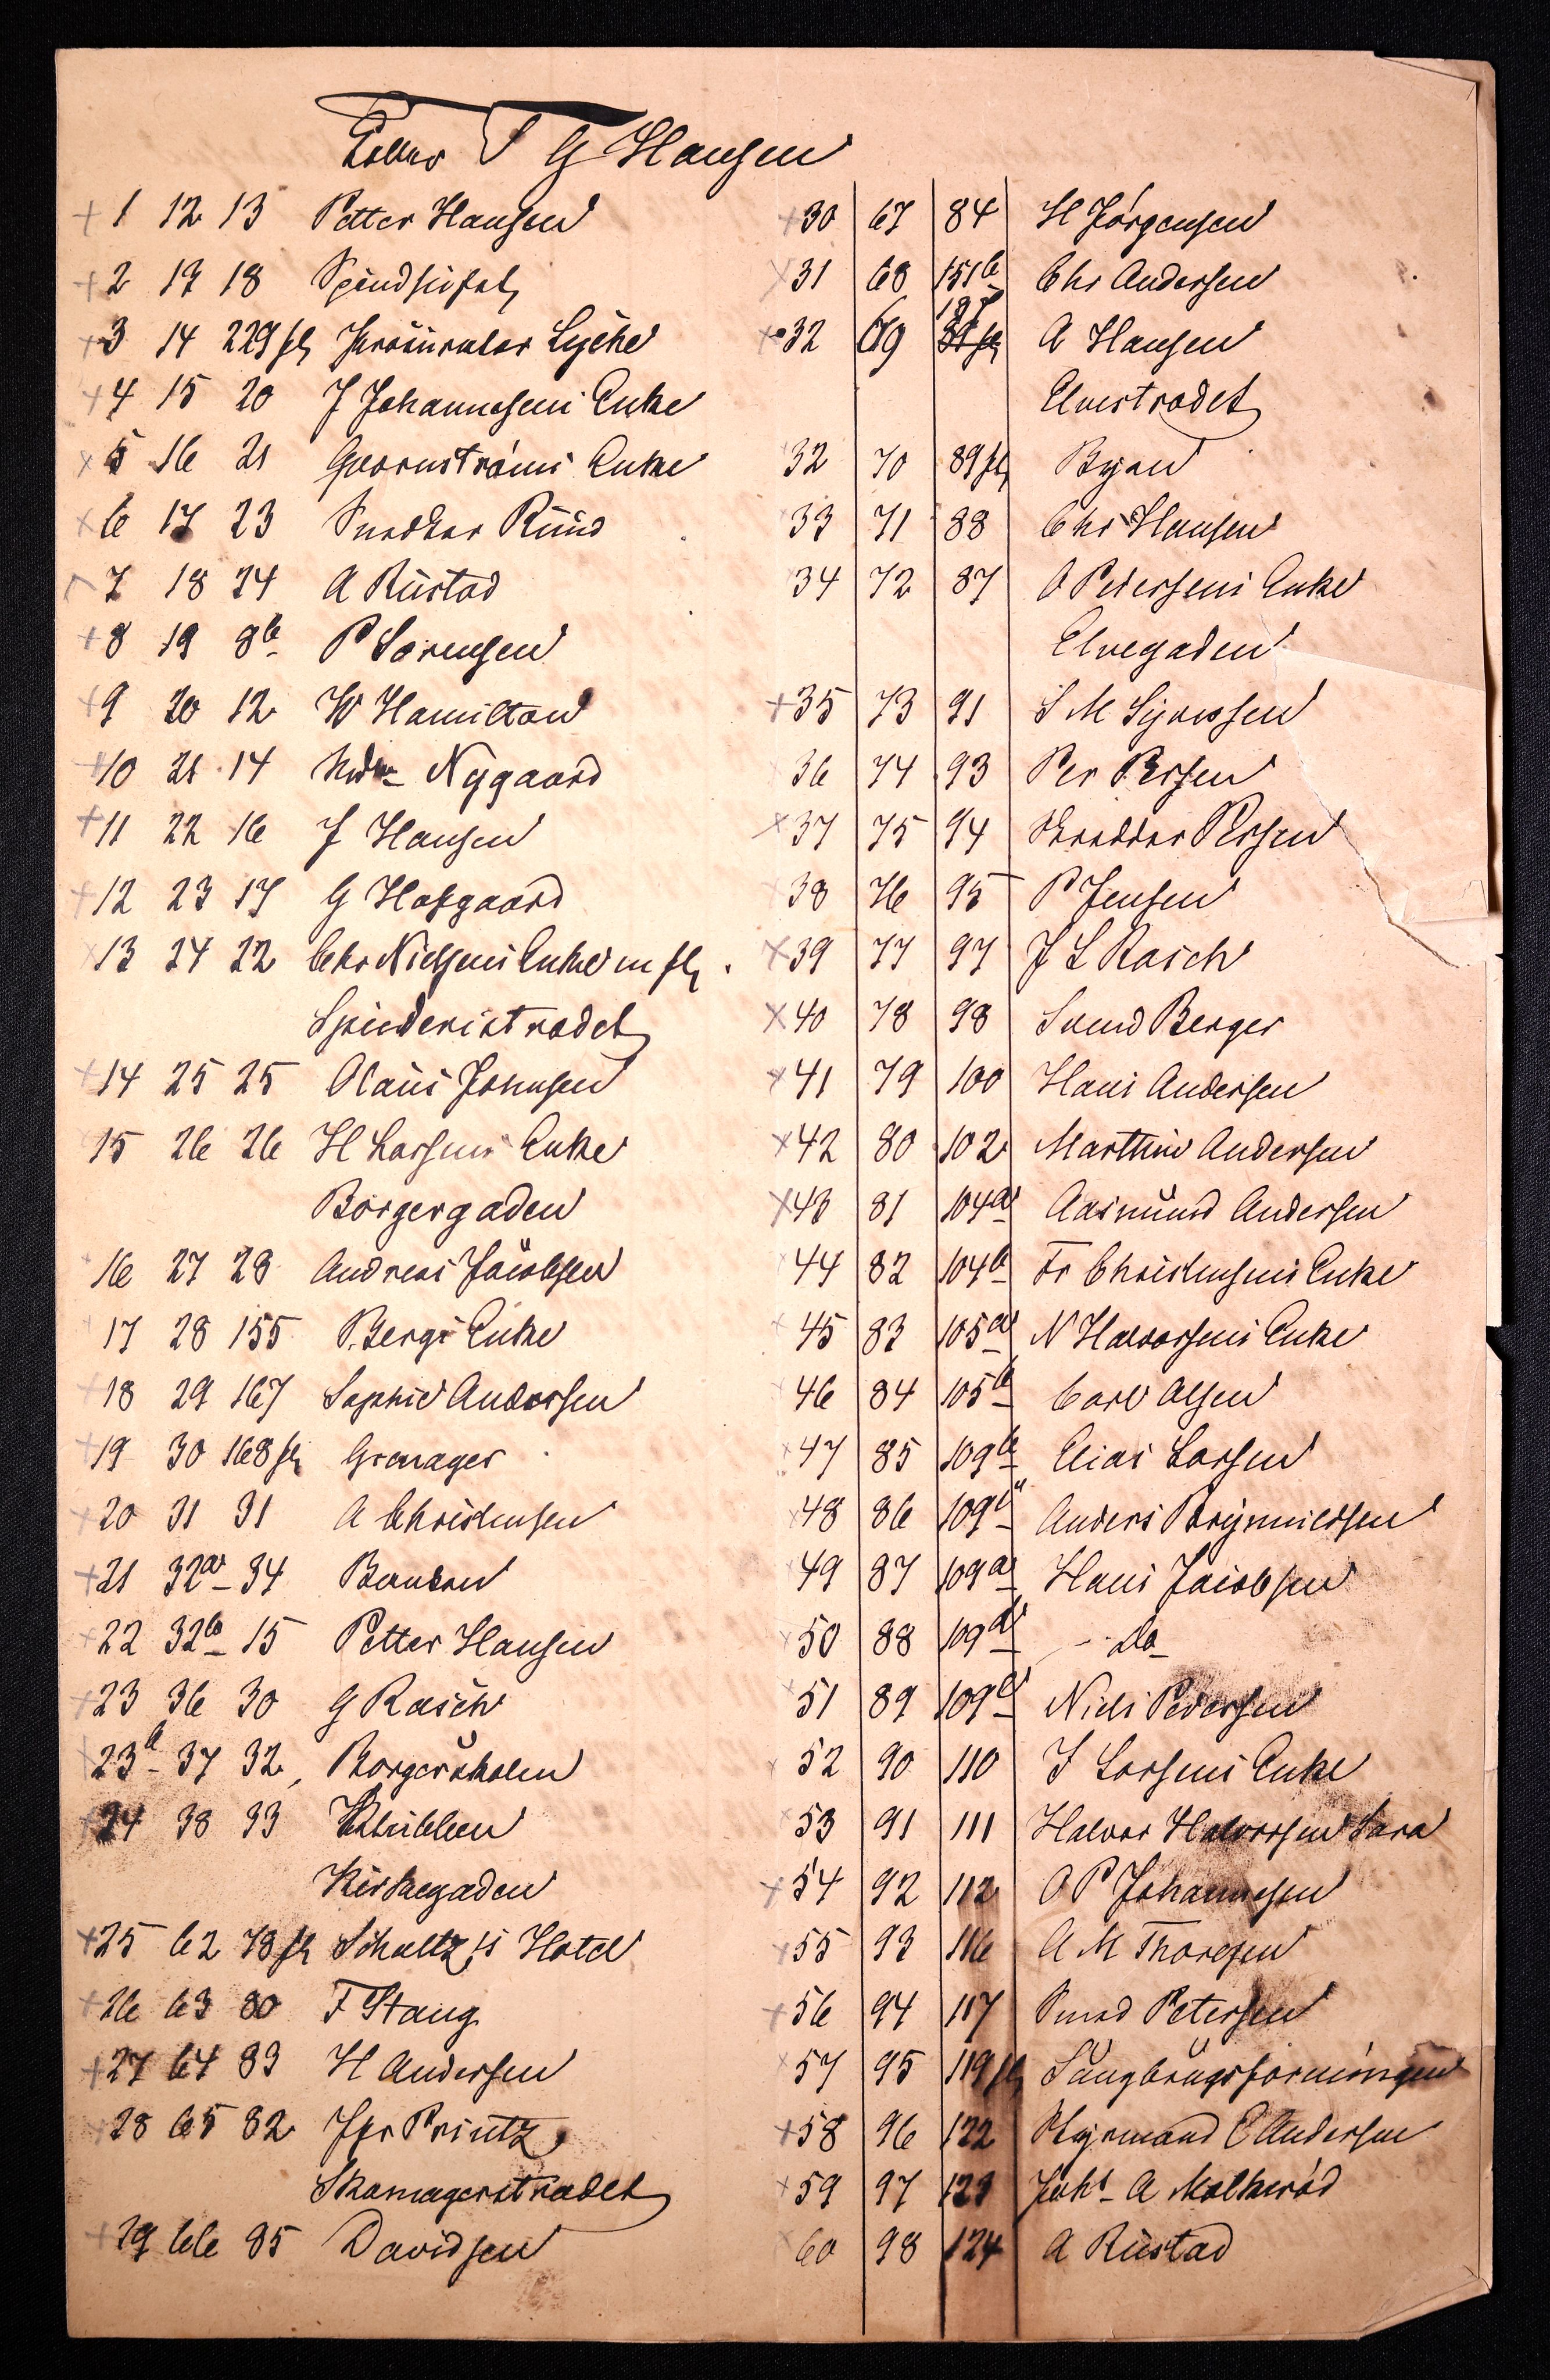 T G Hansen
+ 1 12 13 Petter Hansen
+ 2 13 18
+ 3 14 229 fl Lyche
+ 4 15 20 J Johannesens Enke
x 5 16 21 Enke
x 6 17 23 Snedker Ruud
7 18 24 A Rustad
+ 8 19 9b P Sørensen
+ 9 20 12 W Hamilton
+ 10 21 14 Nygaard
+ 11 22 16 J Hansen
+ 12 23 17 G Hofgaard
x 13 24 22 Chr Nielsens Enke m fl
Spinderistrædet
+ 14 25 25 Olaus Johnsen
15 26 26 H Larsens Enke
Borgergaden
16 27 28 Andreas Jacobsen
17 28 155 P. Bergs Enke
+ 18 29 167 Sophie Andersen
+ 19 30 168 fl Grønager
+ 20 31 31 A Christensen
+ 21 32a 34 Banken
+ 22 32b 15 Petter Hansen
+ 23 36 30 G Rasch
23b 37 32 Borgerskolen
24 38 33 Klubben
Kirkegaden
+ 25 62 78 fl Schultz's Hotel
+ 26 63 80 F Stang
+ 27 64 83 H Andersen
+ 28 65 82 Jgr Printz
Skomagerstrædet
+ 29 66 85 Davidsen
+ 30 67 84 H Jørgensen
x 31 68 151b Chr Andersen
x 32 69 A Hansen
Elvestrædet
32 70 89 fl Byen
33 71 88 Chr Hansen
34 72 87 O Pedersens Enke
Elvegaden
+ 35 73 91 S M Syversen
36 74 93 Per Persen
x 37 75 94 Skrædder Persen
38 76 95 P Jensen
x 39 77 97 J L Rasch
x 40 78 98 Svend Berger
x 41 79 100 Hans Andersen
x 42 80 102 Marthin Andersen
x 43 81 104a Aasmund Andersen
44 82 104b Fr Christensens Enke
x 45 83 105a N Halvorsens Enke
46 84 105b Carl Olsen
x 47 85 109b Elias Larsen
x 48 86 109 Anders Brynnildsen
49 87 109a Hans Jacobsen
x 50 88 109d - Do
x 51 89 109e Niels Pedersen
x 52 90 110 J Larsens Enke
x 53 91 111 Halvor Halvorsen Lara
x 54 92 112 O P Johannesen
x 55 93 116 A M Thoresen
+ 56 94 117 Smed Petersen
x 57 95 119 fl Saugbrugsforeningen
+ 58 96 122 Styrmand E Andersen
+ 59 97 123 Joh A Molkerød
x 60 98 124 A Rustad